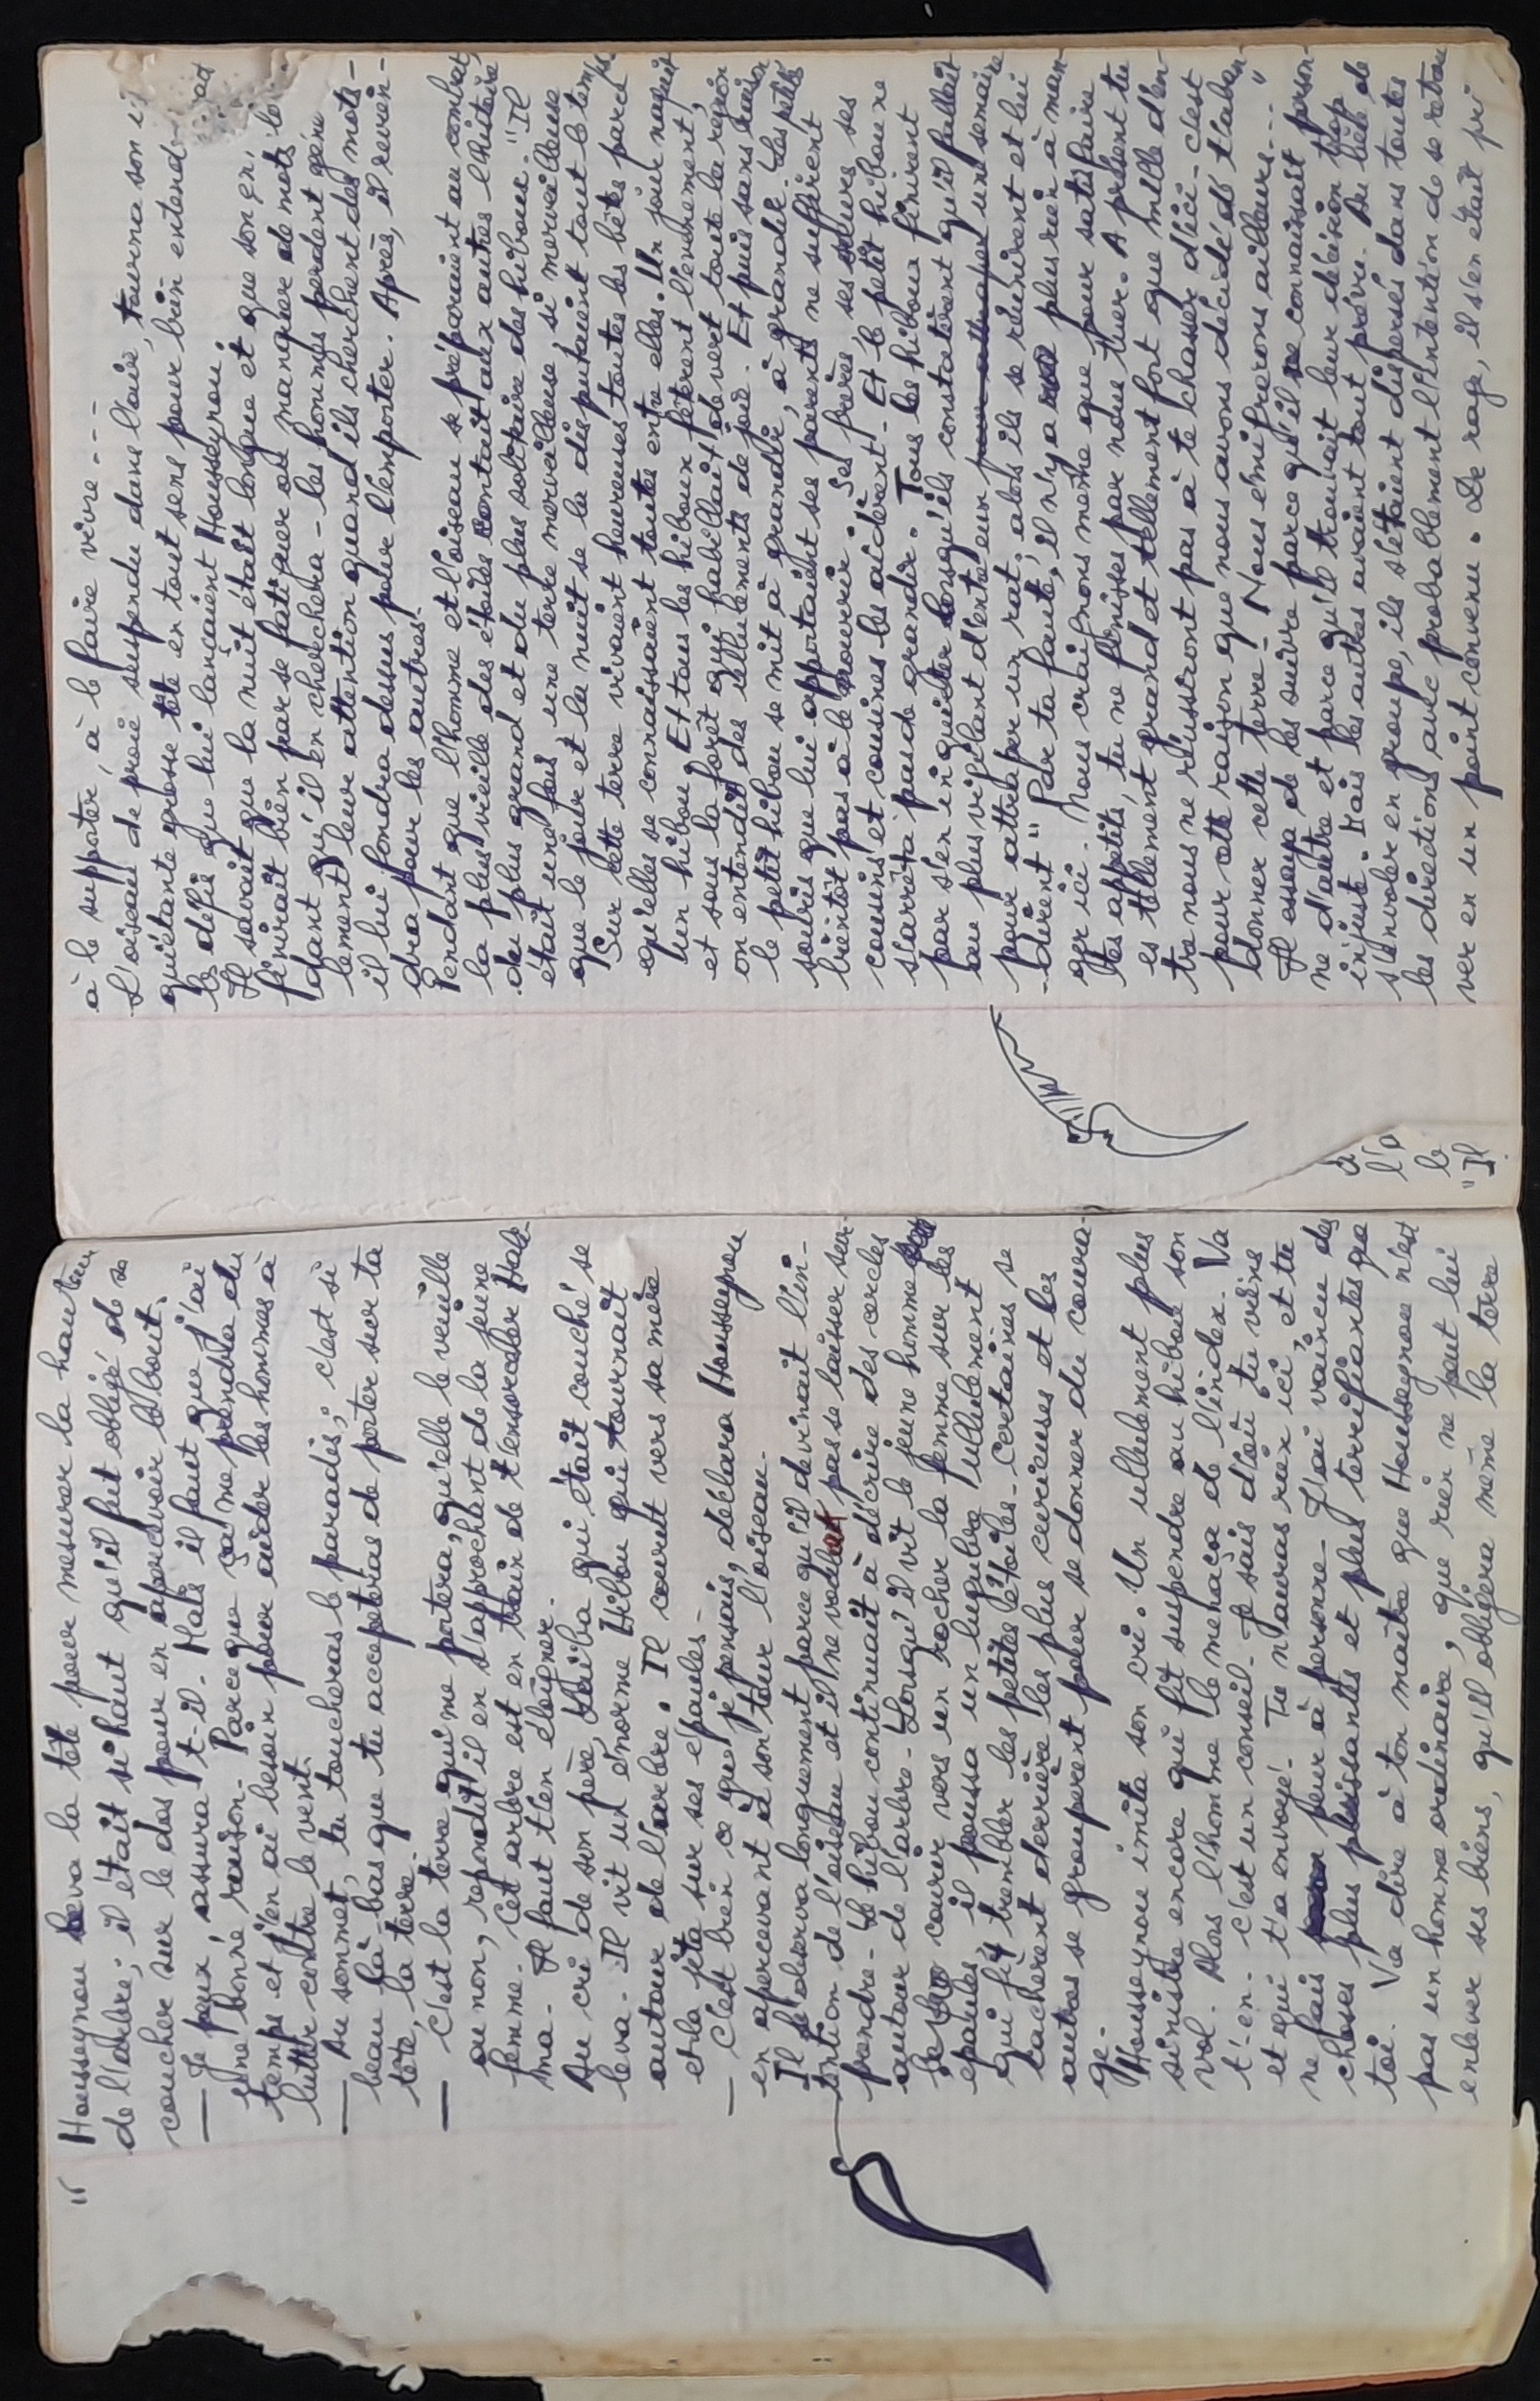 "Housseynou leva la tête pour mesurer la hauteur
de l'arbre ; il était si haut qu'il fut obligé de se
coucher sur le dos pour en apercevoir le bout.
— Je peux, assura-t-il. Mais il faut que j'ai
une bonne raison. Parce que ça me prendra du
temps et j'en ai besoin pour aider les hommes à
lutter contre le vent.
— Au sommet, tu toucheras le paradis ; c'est si
beau là-bas que tu accepterias de porter sur ta
tête, la terre.
— C'est la terre qui me portera, qu'elle le veuille
ou non, repondit il en s'approchant de la jeune
femme. Cet arbre est en train de t'ensorceler
ma. Il faut t'en éloigner.
Au cri de son père, qui était couché se
leva. Il vit un énorme Hibou qui tournait
autour de l'arbre. Il courut vers sa mère
et la jeta sur ses épaules.
— C'est bien ce que je pensais, déclara Housseynou
en apercevant à son tour l'oiseau.
Il l'observa longuement parce qu'il devinait l'in-
tention de l'oiseau et il ne voulait pas se laisser sur-
prendre. Le hibou continuait à décrire des cercles
autour de l'arbre. Lorsqu'il vit le jeune homme
courir vers un rocher la femme sur les
epaules, il poussa un lugubre hullulement
qui fit trembler les petites étoiles. Certaines se
cachèrent derrière les plus curieuses et les
autres se groupèrent pour se donner du coura-
ge.
Housseynou imita son cri. Un ullulement plus
sinistre encore qui fit suspendre au hibou son
vol. Alors l'homme le menaça de l'index. Va
t'-en. c'est un conseil. Je sais d'où tu viens
et qui t'a envoyé. Tu n'auras rien ici, et tu
ne fais peur à personne. J'ai vaincu des
choses plus puissantes et plus terrifiantes que
toi. Va dire à ton maître que Housseynou n'est
pas un homme ordinaire, que rien ne peut lui
enlever ses biens, qu'il obligera même la terre
à le supporter, à le faire vivre - - -
L'oiseau de proie suspendu dans l'aire, tourna son i
quiétante grosse tête en tout sens pour bien entend
le défis que lui lançaient Housseynou.
Il savait que la nuit était longue et que son en,
finirait bien par se fatiguer ou manquer de mots
dant qu'il en cherchera - les hommes perdent géné
lement leur attention quand ils cherchent des mots -
il lui fondra dessus pour l'emporter. Après, il revien-
dra pour les autres.
Pendant que l'homme et l'oiseau se préparaient au combat,
la plus vieille des étoiles contait aux autres l'histoire
du plus grand et du plus solitaire des hiboux. "Il
était une fois une terre merveilleuse, si merveilleuse
que le jour et la nuit se la disputaient tout le temps
Sur cette terre vivaient heureuses toutes les bêtes parce
qu'elles se connaissaient toutes entre elles. Un jour naquit
un hibou. Et tous les hiboux fêtèrent l'évenement,
et sous la forêt qui habillait de vert toute la region
on entendit des ullulements de joie. Et puis sans raison
le petit hibou se mit à grandir, à grandir. Les petites
souris que lui apportaient ses parents ne suffirent
bientôt pas à le nourrir. Ses frères, ses sœurs ses
cousins et cousines les aidèrent. Et le petit hibou ne
s'arrêta pas de grandir. Tous les hiboux finirent
par s'en inquiéter lorsqu'ils constatèrent qu'il fallait
au plus vigilant d'entre eux pour attraper une semaine
pour attraper un rat, alors ils se réunirent et lui
dirent "Par ta faute, il n'y a plus rien à man
ger ici. Nous craignons même que pour satisfaire
tes appetits, tu ne finisses par nous tuer. A présent tu
es tellement grand et tellement fort que mille d'en-
tre nous ne réussiront pas à te chasser d'ici - c'est
pour cette raison que nous avons décidé de t'aban-
donner cette terre. Nous émigrerons ailleurs..."
Il essaya de les suivre parce qu'il ne connaissait person-
ne d'autre et parce qu'il trouvait leur décision trop
injuste. Mais les autres avaient tout prévu. Au lieu de
s'envoler en groupe, ils s'étaient dispersés dans toutes
les directions avec probablement l'intention de se retrou
ver en un point convenu. De rage, il s'en était pri
a
l'o
le
"Il